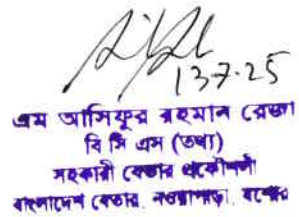 13-7-25
এম আসিফুর রহমান রেজা
বি সি এস (তথ্য)
সহকারী বেতার প্রকৌশলী
বাংলাদেশ বেতার, নওয়াপাড়া, যশোর